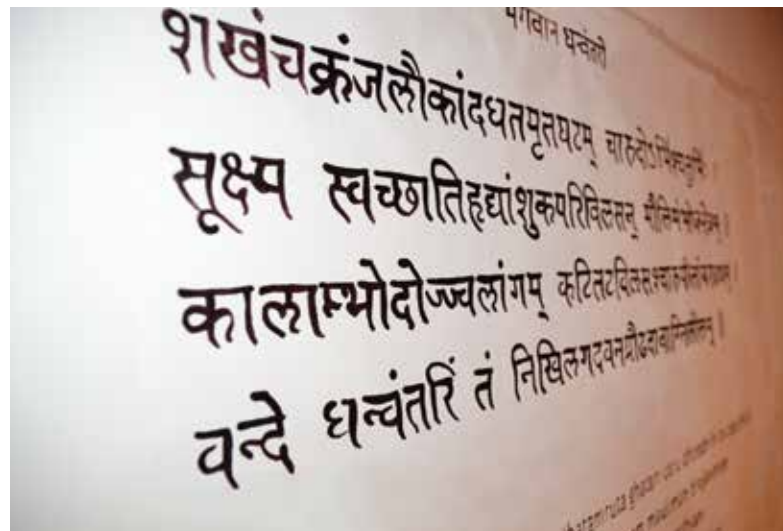 भगवान धन्वंतरी
शखंचक्रंजलौकांदधतमृतघटम् चारुदोऽर्भिश्चतुर्भिः
सूक्ष्म स्वच्छातिहृद्यांशुकपरिविलसन् मौलिमंभोजनेत्रम् ॥
कालाम्भोदोज्ज्वलांगम् कटितटविलसश्चारुपीतांबराढ्यम् ।
वन्दे धन्वंतरिं तं निखिलगदवनप्रौढदावाग्निलीलम् ॥